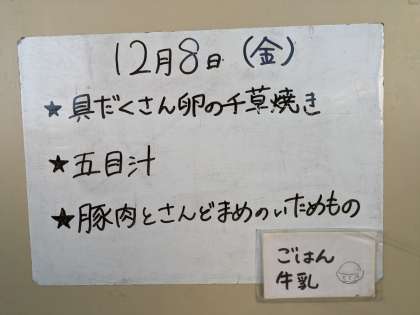 12月8日(金)
★具だくさん卵の千草焼き
★五目汁
★豚肉とさんどまめのいためもの
ごはん
牛乳